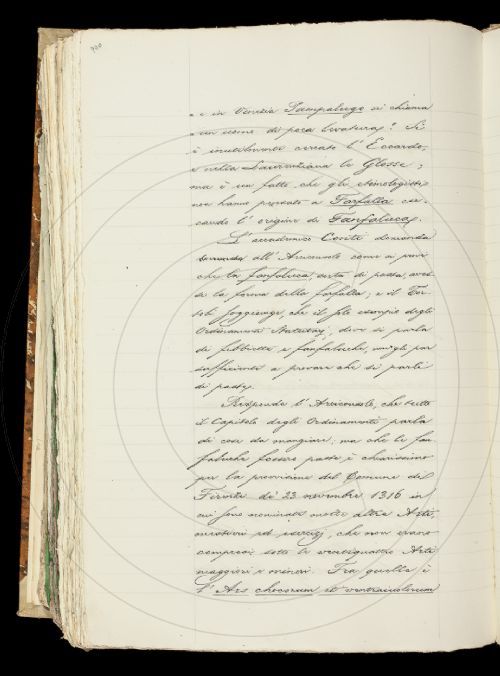 700
« e in Venezia Pampaluga si chiama
« un uomo di poca levatura ». Si
è inutilmente cercato l'Eccardo,
e nella Laurenziana le Glosse;
ma è un fatto che gli etimologisti
non hanno pensato a Farfalla cer-
cando l'origine di Fanfaluca.
L'accademico Conti domanda
all'Arciconsolo come si provi
che la fanfaluca, sorta di pasta, aves-
se la forma della farfalla; e il Tor-
toli soggiunge, che il solo esempio degli
Ordinamenti Nuziali, dove si parla
di e fanfaluche, non gli par
sufficiente a provare che si parli
di paste.
Risponde l'Arciconsolo, che tutto
il Capitolo degli Ordinamenti parla
di cose da mangiare; ma che le fan-
faluche fossero paste è chiarissimo
per la provvisione del Comune di
Firenze de' 23 novembre 1316 in
cui sono nominate molte altre Arti,
ed esercizj, che non erano
compresi sotto le ventiquattro Arti
maggiori e minori. Tra quelle è
l'Ars et